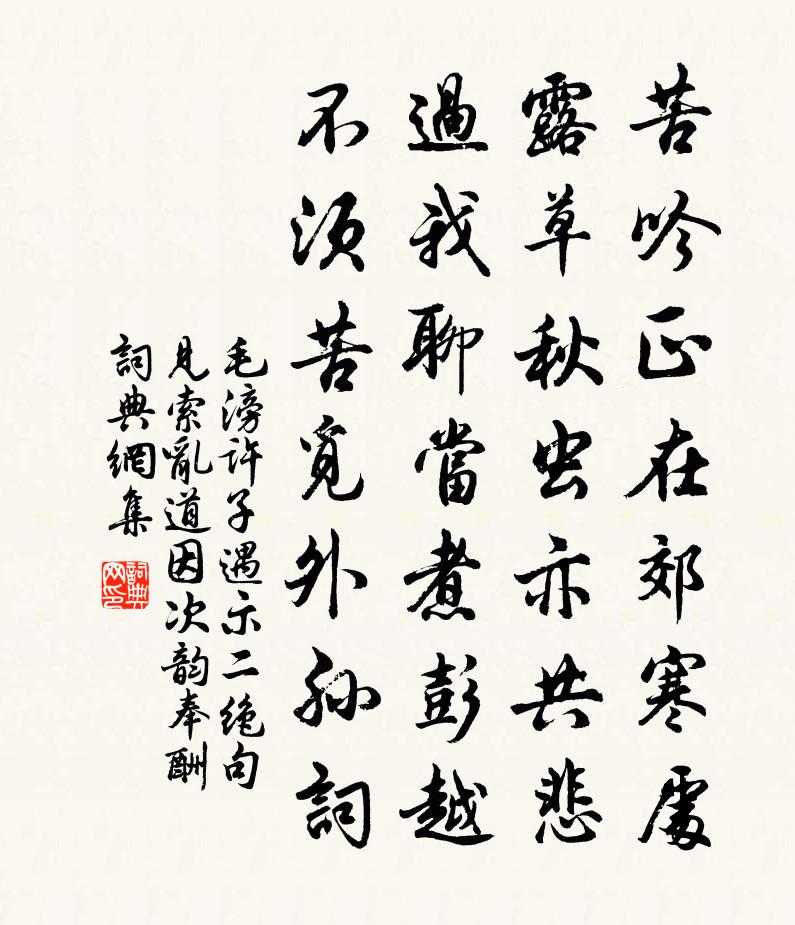 苦吟正在郊寒處
露草秋虫亦共悲
過我聊當煮彭越
不須苦覓外孫詞
毛滂許子遇示二絶句
見索亂道因次韵奉酬
詞典網集
詞典网印